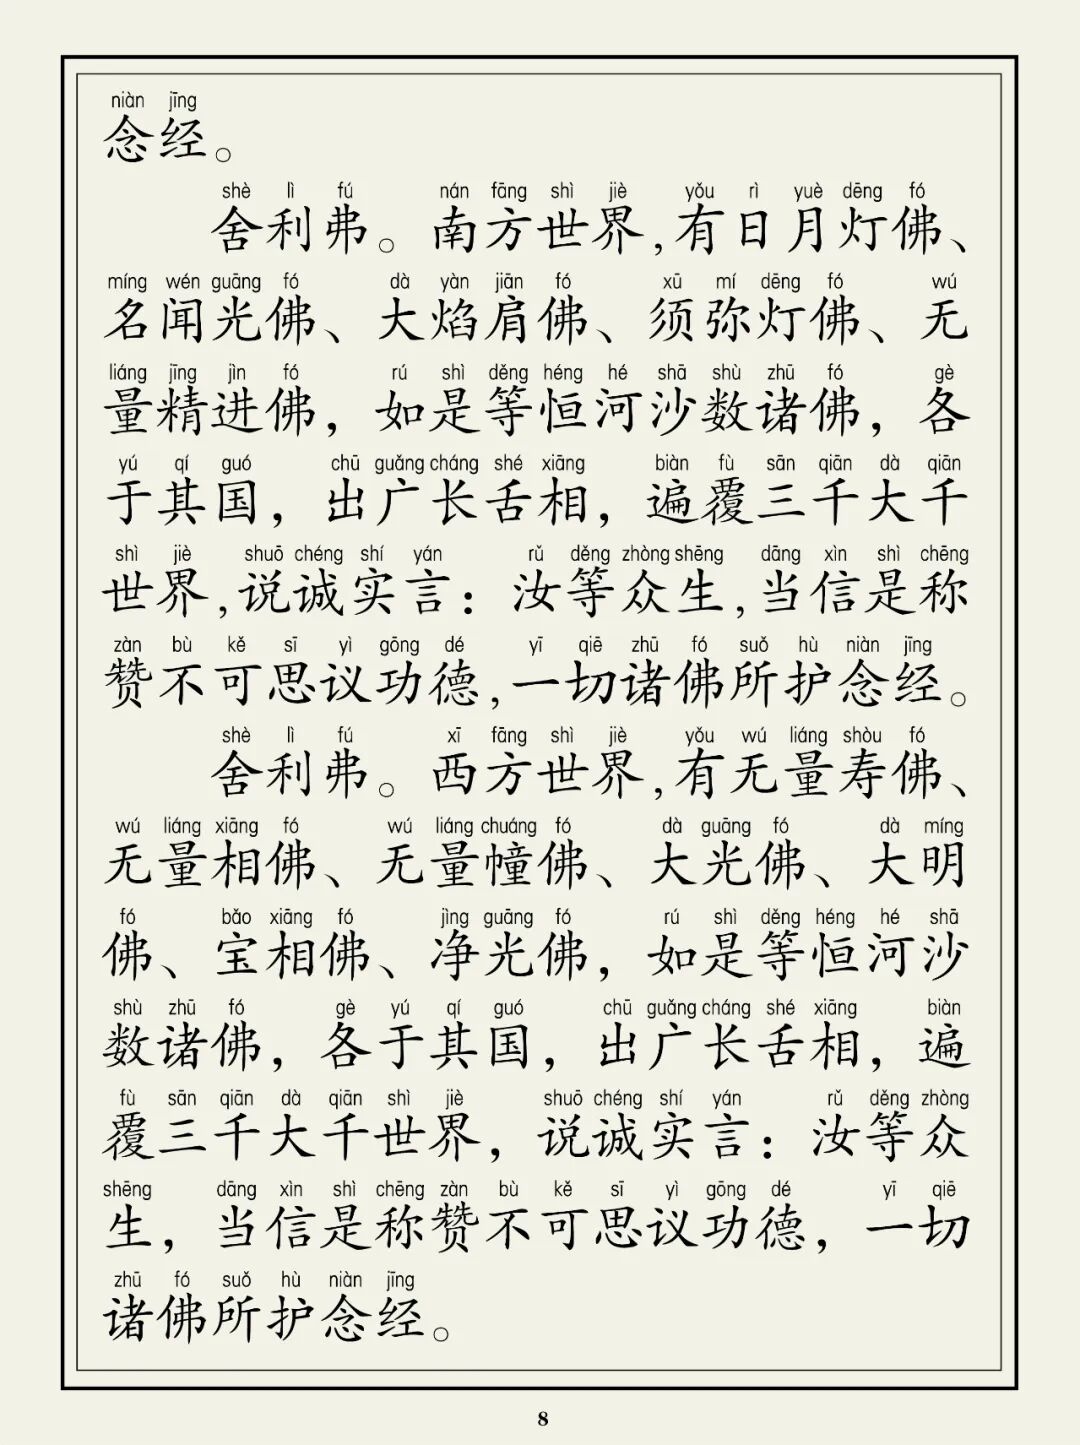 niàn jīng
念经。
shè lì fú nán fāng shì jiè yǒu rì yuè dēng fó
舍利弗。南方世界,有日月灯佛、
míng wén guāng fó dà yàn jiān fó xū mí dēng fó wú
名闻光佛、大焰肩佛、须弥灯佛、无
liáng jīng jìn fó rú shì děng héng hé shā shù zhū fó gè
量精进佛，如是等恒河沙数诸佛，各
yú qí guó chū guǎng cháng shé xiāng biàn fù sān qiān dà qiān
于其国，出广长舌相，遍覆三千大千
shì jiè shuō chéng shí yán rǔ děng zhòng shēng dāng xìn shì chēng
世界,说诚实言：汝等众生,当信是称
zàn bù kě sī yì gōng dé yī qiē zhū fó suǒ hù niàn jīng
赞不可思议功德,一切诸佛所护念经。
shè lì fú xī fāng shì jiè yǒu wú liáng shòu fó
舍利弗。西方世界,有无量寿佛、
wú liáng xiāng fó wú liáng chuáng fó dà guāng fó dà míng
无量相佛、无量幢佛、大光佛、大明
fó bǎo xiāng fó jìng guāng fó rú shì děng héng hé shā
佛、宝相佛、净光佛，如是等恒河沙
shù zhū fó gè yú qí guó chū guǎng cháng shé xiāng biàn
数诸佛，各于其国，出广长舌相，遍
fù sān qiān dà qiān shì jiè shuō chéng shí yán rǔ děng zhòng
覆三千大千世界，说诚实言：汝等众
shēng dāng xìn shì chēng zàn bù kě sī yì gōng dé yī qiē
生，当信是称赞不可思议功德，一切
zhū fó suǒ hù niàn jīng
诸佛所护念经。
8